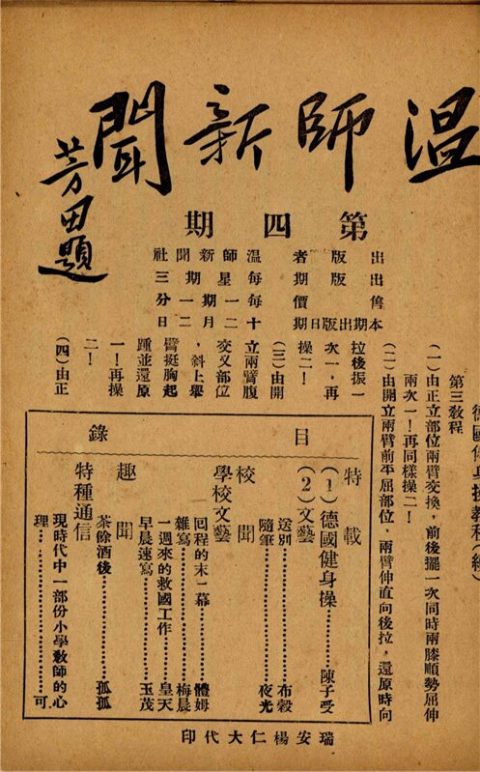 温師新聞
芳田題
第四期
出版者 溫師新聞社
出版期 每星期三
售價 每期一分
本期出版日期 十二月二日
德國健身操教程(續)
第三教程
(一)由正立部位兩臂交換，前後擺一次同時兩膝順勢屈伸
兩次一！再同樣操二！
(二)由開立兩臂前平屈部位，兩臂伸直向後拉，還原時向
拉後振一
次一，再
操二！
(三)由開
立兩臂腹
交叉部位
，斜上舉
臂挺胸起
踵並還原
一！再操
二！
(四)由正
目錄
特載
(1)德國健身操……陳子受
(2)文藝
送別……布穀
隨筆……夜光
校聞
學校文藝
回程的末一幕……體姆
雜寫……梅晨
一週來的救國工作……皇天
早晨速寫……玉茂
趣聞
茶餘酒後……孤孤
特種通信
現時代中一部份小學教師的心
理……可
瑞安楊仁大代印